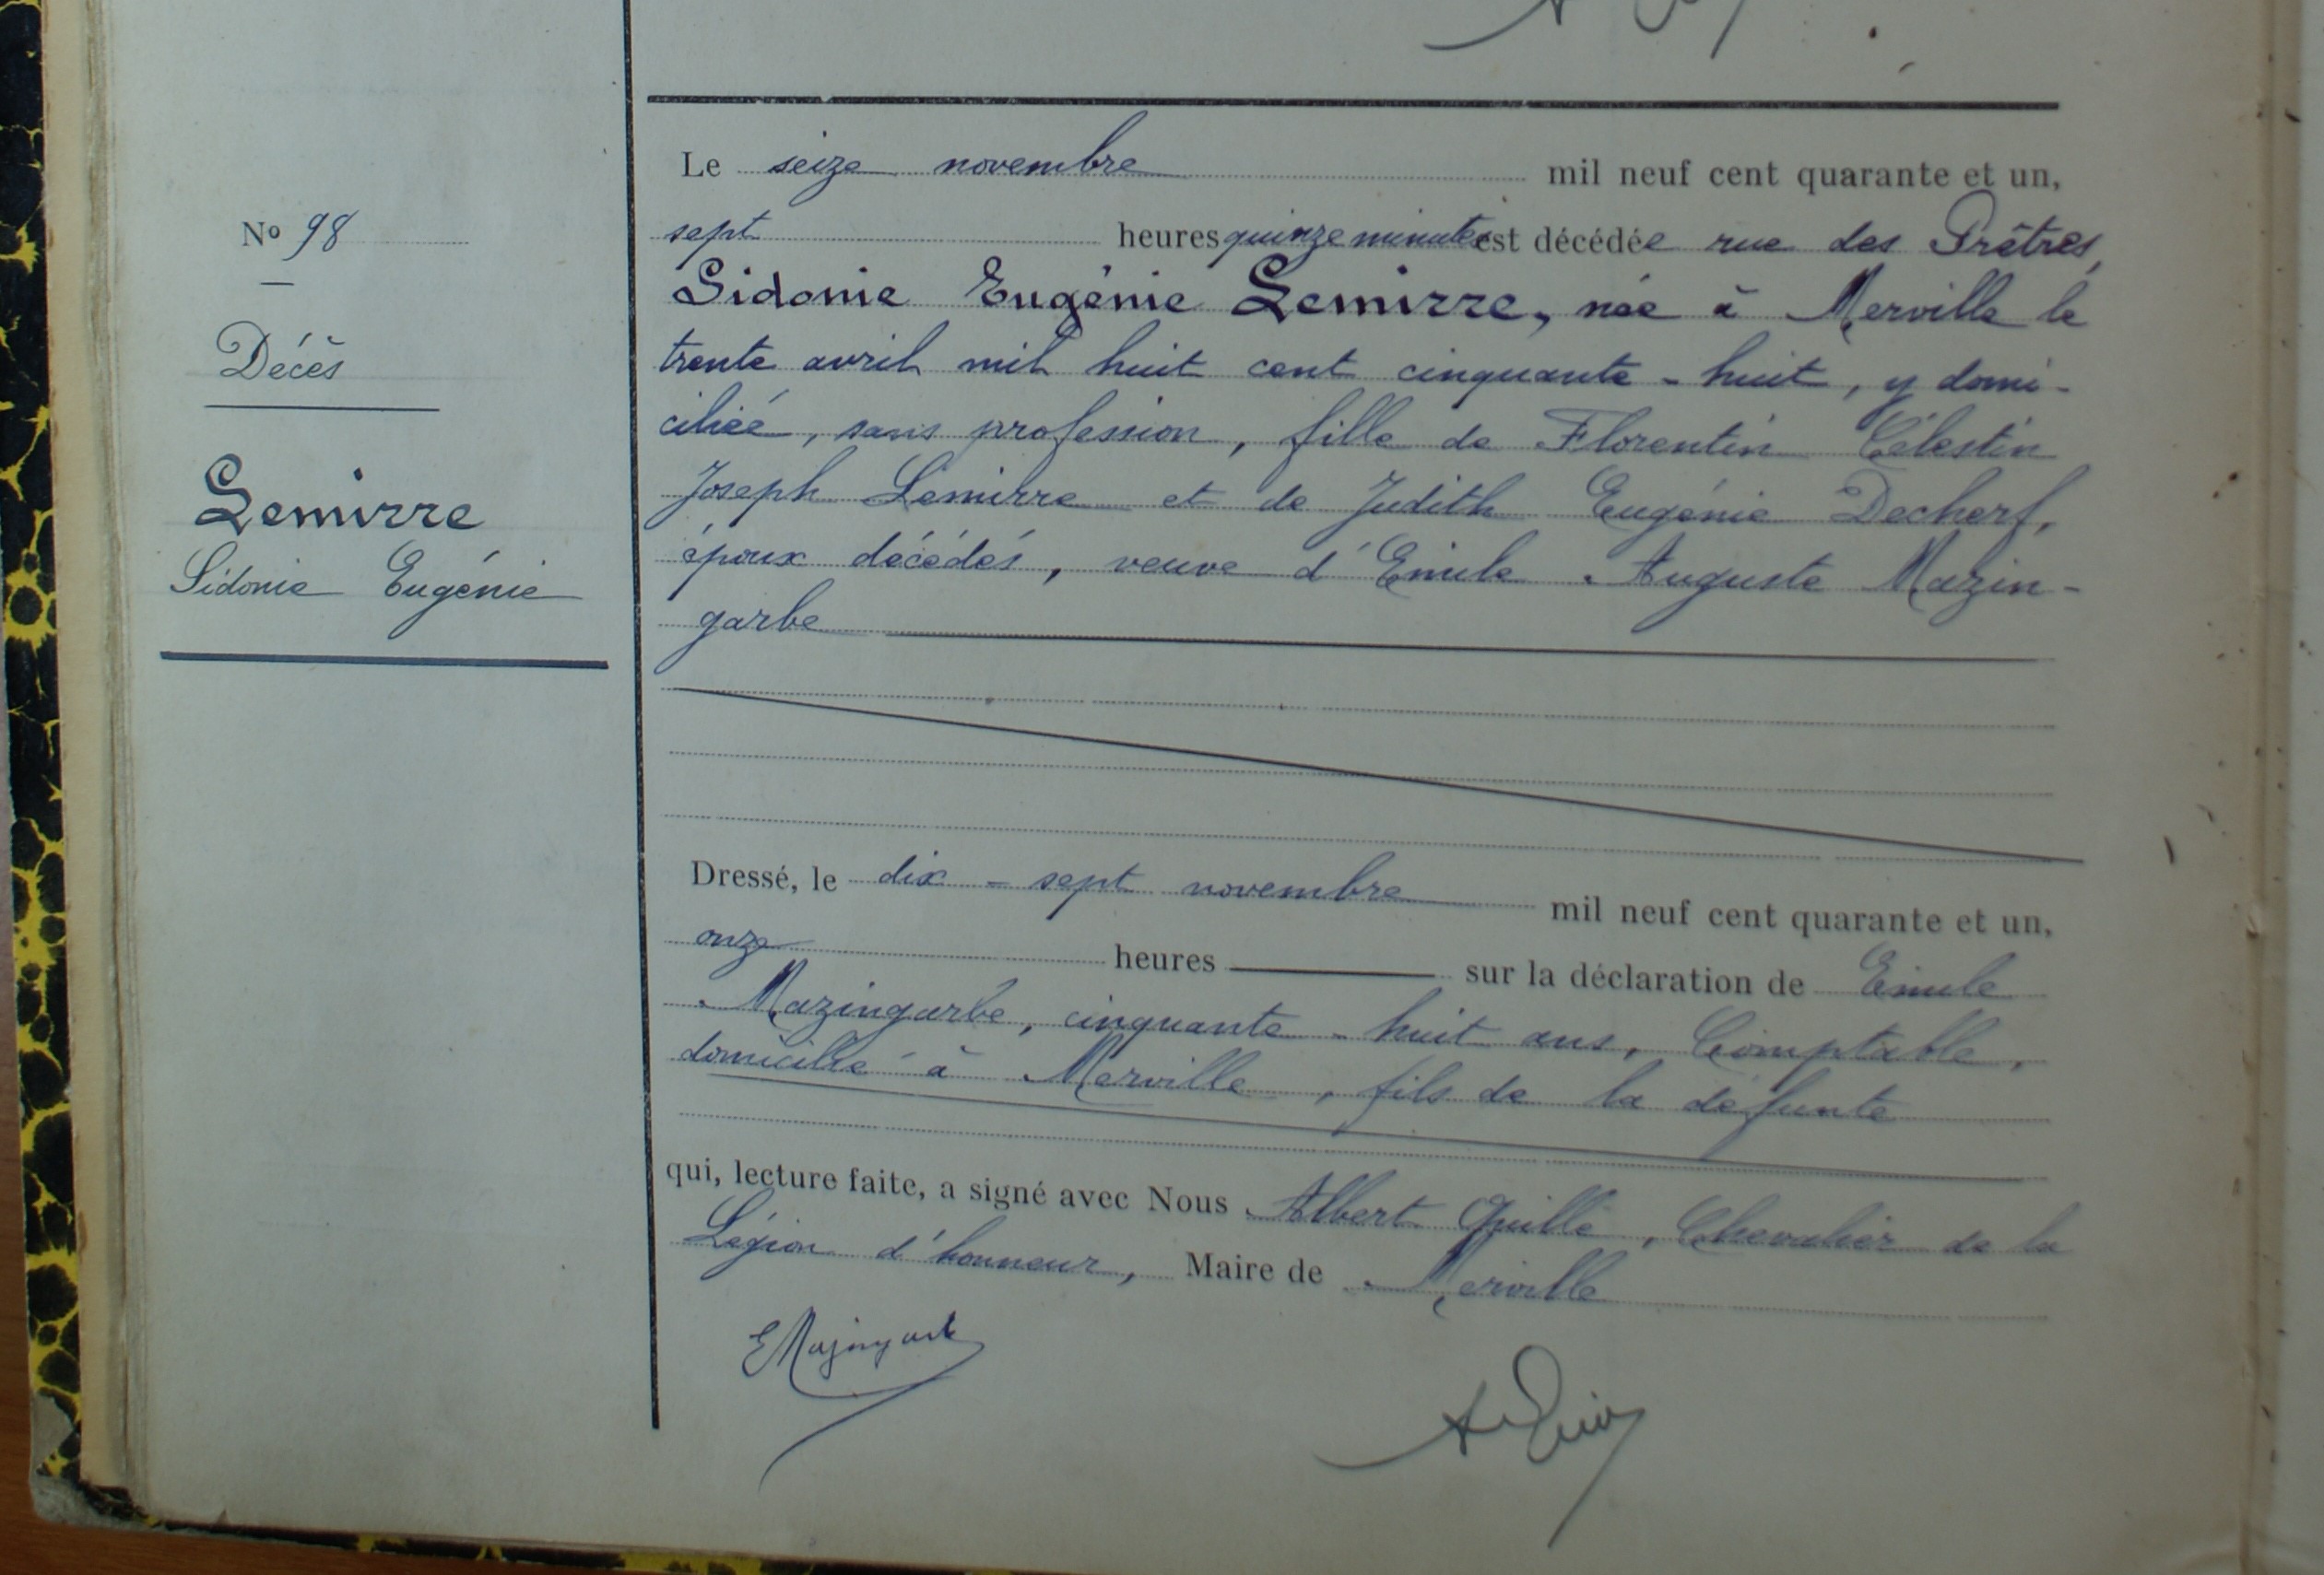 No 98
Décès
Lemirre
Sidonie Eugénie
Le seize novembre mil neuf cent quarante et un,
sept heures quinze minutes est décédée rue des Prêtres,
Sidonie Eugénie Lemirre, née à Merville le
trente avril mil huit cent cinquante-huit, y domi-
ciliée, sans profession, fille de Florentin Célestin
Joseph Lemirre et de Judith Eugénie Decherf,
époux décédés, veuve d'Emile Auguste Mazin-
garbe
Dressé, le dix-sept novembre mil neuf cent quarante et un,
onze heures sur la déclaration de Emile
Mazingarbe, cinquante-huit ans, Comptable,
domicilié à Merville, fils de la défunte
qui, lecture faite, a signé avec Nous Albert Quillé, Chevalier de la
Légion d'honneur, Maire de Merville
E Mazingarbe